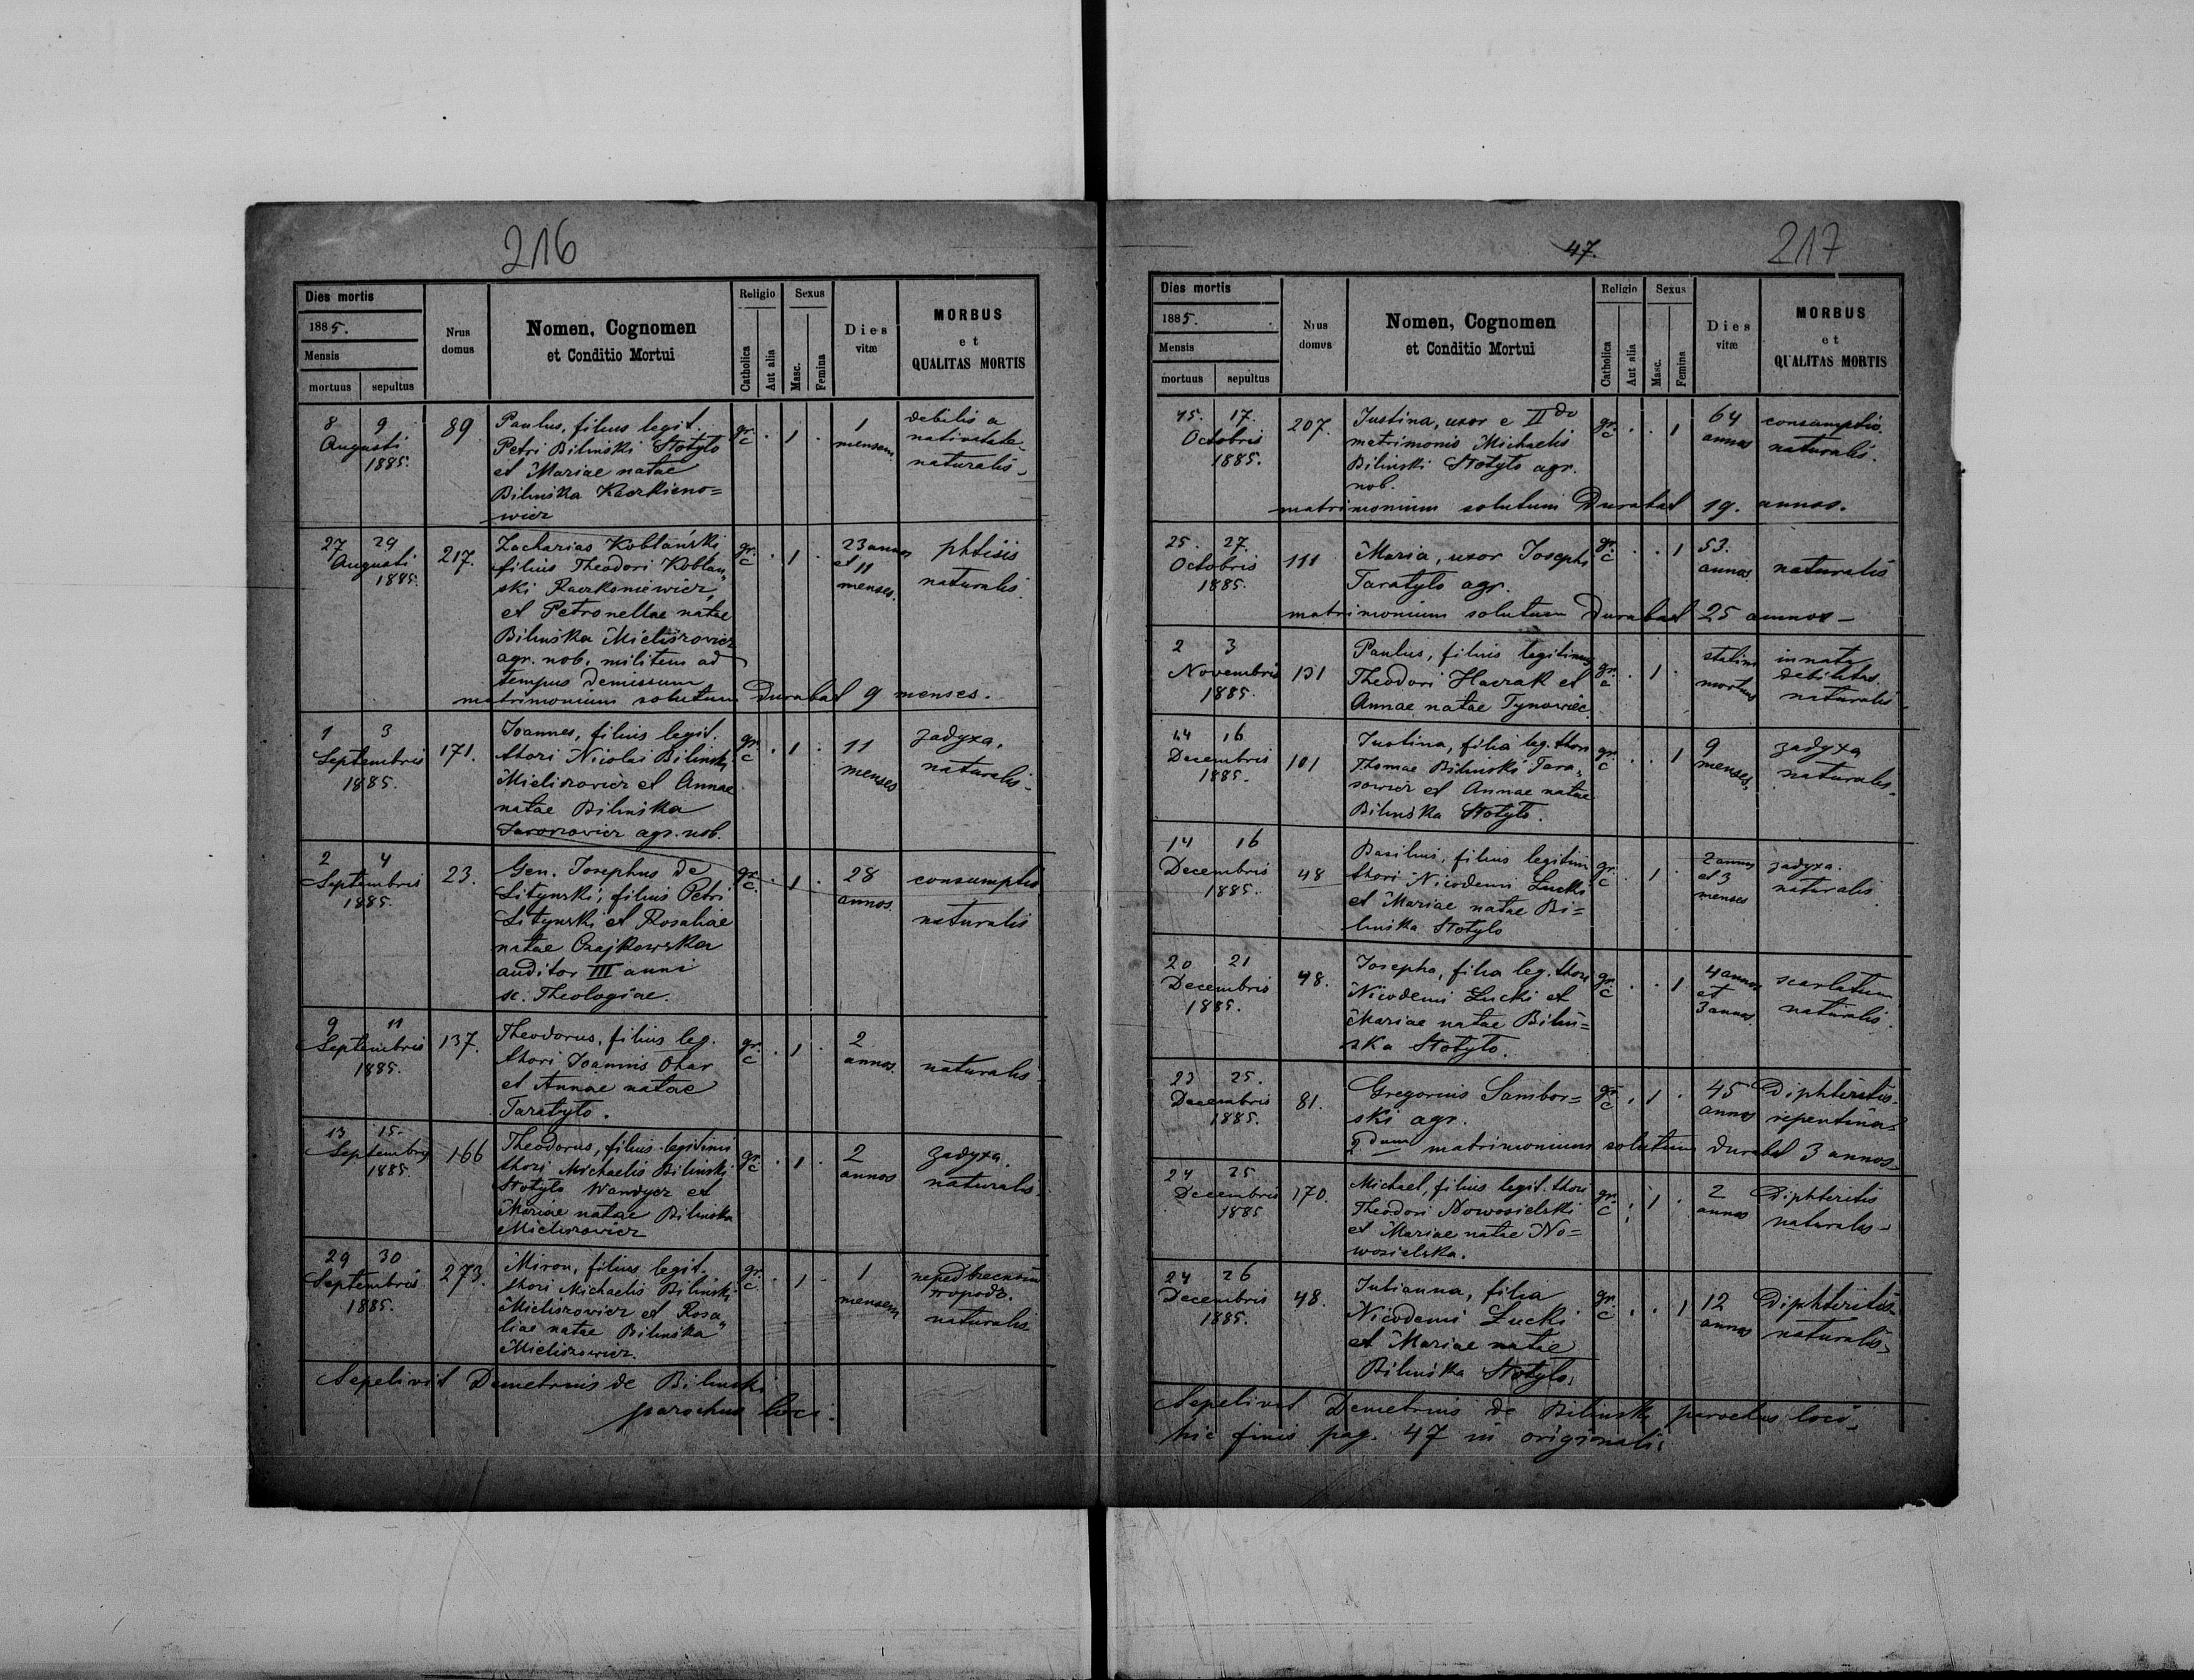 216
Dies mortis
1885.
Mensis
mortuus sepultus
Nrus domus
Nomen, Cognomen
et Conditio Mortui
Religio
Catholica
Aut alia
Sexus
Masc.
Femina
Dies vitæ
MORBUS
et
QUALITAS MORTIS
8 9
Augusti
1885.
89
Paulus, filius legit.
Petri Biliński Stotyło
et Mariae natae
Bilińska Kaczkieno=
wicz
gr. c
1
1
mensem
debilis a
nativitate
naturalis
27 29
Augusti
1885.
217.
Zacharias Kobłański
filius Theodori Kobłań„
ski Raczkoniewicz
et Petronellae natae
Bilińska Mieliszowicz
agr. nob. militem ad
tempus demissum
matrimonium solutum durabat 9 menses.
gr. c
1
23 annos
et 11
menses.
phtisis
naturalis
1 3
Septembris
1885.
171.
Joannes, filius legit.
thori Nicolai Biliński
Mieliszowicz et Annae
natae Bilińska
agr. nob.
gr. c
1
11
menses
задуха.
naturalis
2 4
Septembris
1885.
23.
Gen. Josephus de
Lityński, filius Petri
Lityński et Rosaliae
natae Czajkowska
auditor III anni
sc. Theologiae.
gr. c.
1
28
annos.
consumptio
naturalis
9 11
Septembris
1885.
137.
Theodorus, filius leg.
thori Joannis Ohar
et Annae natae
Taratyło.
gr. c
1
2
annos.
naturalis
13 15.
Septembris
1885.
166
Theodorus, filius legitimi
thori Michaelis Biliński
Stotyło Wandycz et
Mariae natae Bilińska
Mieliszowicz
gr. c
1
2
annos
задуха.
naturalis
29 30
Septembris
1885.
273.
Miron, filius legit.
thori Michaelis Biliński
Mieliszowicz et Rosa„
liae natae Bilińska
Mieliszowicz.
gr. c.
1
1
mensem
naturalis
Sepelivit Demetrius de Biliński
parochus loci.
47.
217
Dies mortis
1885.
Mensis
mortuus sepultus
Nrus domus
Nomen, Cognomen
et Conditio Mortui
Religio
Catholica
Aut alia
Sexus
Masc.
Femina
Dies vitæ
MORBUS
et
QUALITAS MORTIS
15. 17.
Octobris
1885.
207.
Justina, uxor e II do
matrimonio Michaelis
Biliński Stotyło agr.
nob.
matrimonium solutum durabat 19. annos.
gr. c
1
64
annos
consumptio.
naturalis.
25. 27.
Octobris
1885.
111
Maria, uxor Josephi
Taratyło agr.
matrimonium solutum durabat 25 annos
gr. c
1
53.
annos
naturalis
2 3
Novembris
1885.
131
Paulus, filius legitimus
Theodori Haczak et
Annae natae Tynowiec
gr. c
1
statim
mortuus
innata
debilitas.
naturalis
14 16
Decembris
1885.
101
Justina, filia leg. thori
Thomae Biliński Tara„
sowicz et Annae natae
Bilińska Stotyło.
gr. c
1
9
menses
задуха
naturalis
14 16
Decembris
1885.
48
Basilius, filius legitimi
thori Nicodemi Łucki
et Mariae natae Bi=
lińska Stotyło
gr. c
1
2 annos
et 3
menses
задуха.
naturalis
20 21
Decembris
1885.
48.
Josepha, filia leg. thori
Nicodemi Łucki et
Mariae natae Biliń=
ska Stotyło.
gr. c
1
4 annos
et
3 annos.
scarlatum
naturalis
23 25.
Decembris
1885.
81.
Gregorius Sambor=
ski agr.
2 dum matrimonium solutum durabat 3 annos
gr. c
1
45
annos
Diphteritis
repentina
24 25
Decembris
1885
170.
Michael, filius legit. thori
Theodori Nowosielski
et Mariae natae No=
wosielska.
gr. c
1
2
annos
Diphteritis
naturalis
24 26
Decembris
1885.
48.
Julianna, filia
Nicodemi Łucki
et Mariae natae
Bilińska Stotyło.
gr. c
1
12
annos
Diphteritis
naturalis
Sepelivit Demetrius de Biliński parochus loci
hic finis pag. 47 in originali.